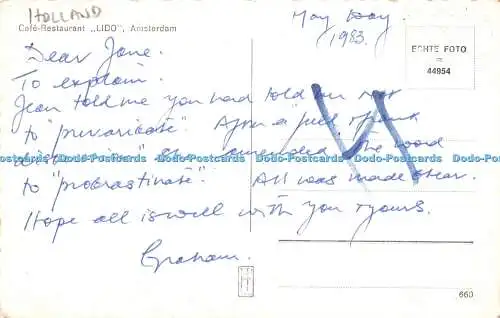 HOLLAND
Café-Restaurant „LIDO", Amsterdam
May Day
1983.
ECHTE FOTO
=
44954
Dear Jane.
To explain.
Jean told me you had told her not
to "prevaricate". After a "peel of
she amended the word
Dodo-Postcards Dodo-Postcards Dodo-Postcards Dodo-Postcards Dodo-Postcards Dodo-Postcards
to "procrastinate". All was made clear.
Hope all is well with you & yours.
Graham.
660